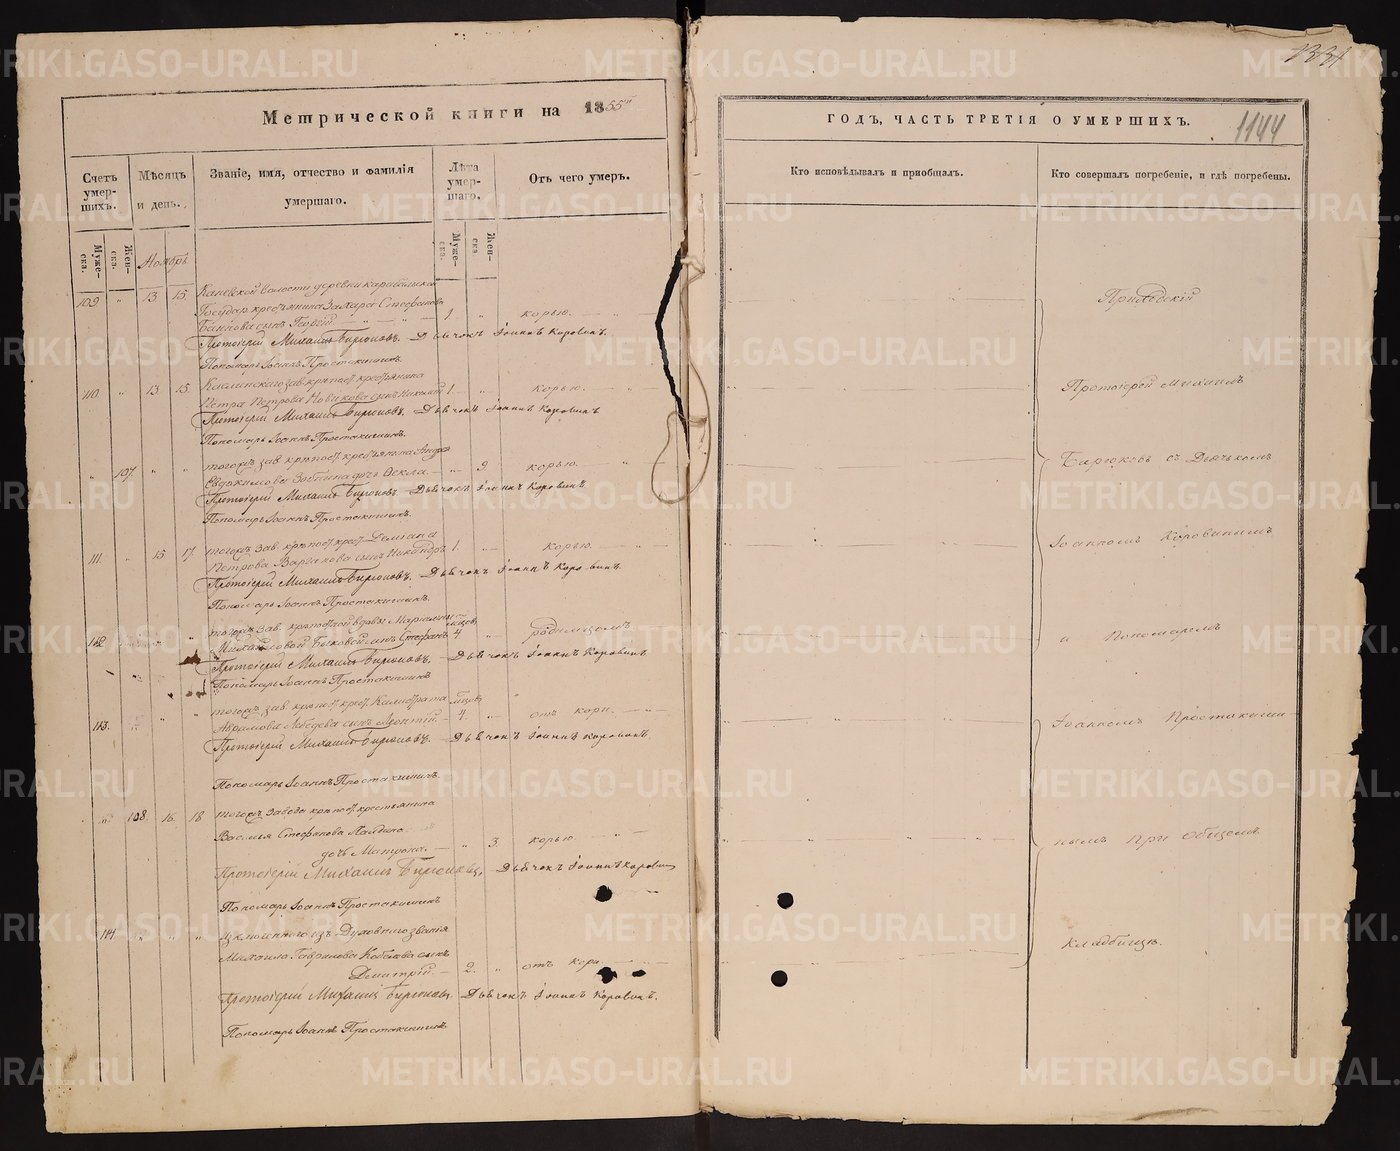 Метрической книги на 1855й
Счетъ умер-шихъ.
Мѣсяцъ и день.
Званіе, имя, отчество и фамилія умершаго.
Лѣта умер-шаго.
Отъ чего умеръ.
Муже-ска.
Жен-ска.
Муже-ска.
Жен-ска.
Ноябрь
109 " 13 15 Каневской волости деревни
Государ. крестьянина Захара Стефанова
сынъ 1 " корью.
Протоіерей Михаилъ Бирюковъ. Дьячокъ Іоаннъ Коровинъ.
Пономарь Іоаннъ Простакишинъ.
110 " 13 15 Каслинскаго зав. крѣпост. крестьянина
Петра Петрова Новикова сынъ Николай 1 " корью.
Протоіерей Михаилъ Бирюковъ. Дьячокъ Іоаннъ Коровинъ
Пономарь Іоаннъ Простакишинъ.
" 107 " " тогожъ зав. крѣпост. крестьянина Андрея
Евдокимова дочь Ѳекла. " 2 корью.
Протоіерей Михаилъ Бирюковъ. Дьячокъ Іоаннъ Коровинъ.
Пономарь Іоаннъ Простакишинъ.
111 " 15 17 тогожъ зав. крѣпост. крест. Деміана
Петрова сынъ Никандръ 1 " корью.
Протоіерей Михаилъ Бирюковъ. Дьячокъ Іоаннъ Коровинъ.
Пономарь Іоаннъ Простакишинъ.
112 " " тогожъ зав. крѣпостной вдовы мѣсяцов.
Михайловой Быковой сынъ Стефанъ 4 " родимцомъ
Протоіерей Михаилъ Бирюковъ. Дьячокъ Іоаннъ Коровинъ.
Пономарь Іоаннъ Простакишинъ
113 " " тогожъ зав. крѣпост. крест. Калистрата мѣсяцов.
Аврамова Лебедева сынъ Леонтій 4 " отъ кори.
Протоіерей Михаилъ Бирюковъ. Дьячокъ Іоаннъ Коровинъ.
Пономарь Іоаннъ Простакишинъ.
" 108 16 18 тогожъ завода крѣпост. крестьянина
Василья Стефанова
дочь Матрона. " 3 корью
Протоіерей Михаилъ Бирюковъ, Дьячокъ Іоаннъ Коровинъ
Пономарь Іоаннъ Простакишинъ
114 " " " изъ Духовнаго званія
Михаила Гаврилова сынъ
Димитрій 2. " отъ кори.
Протоіерей Михаилъ Бирюковъ Дьячокъ Іоаннъ Коровинъ.
Пономарь Іоаннъ Простакишинъ
1331
ГОДЪ, ЧАСТЬ ТРЕТІЯ О УМЕРШИХЪ.
1144
Кто исповѣдывалъ и пріобщалъ.
Кто совершалъ погребеніе, и гдѣ погребены.
Приходскій
Протоіерей Михаилъ
Бирюковъ съ Дьячкомъ
Іоанномъ Коровинымъ
и Пономаремъ
Іоанномъ Простакиши-
нымъ при общемъ
кладбищѣ.
METRIKI.GASO-URAL.RU